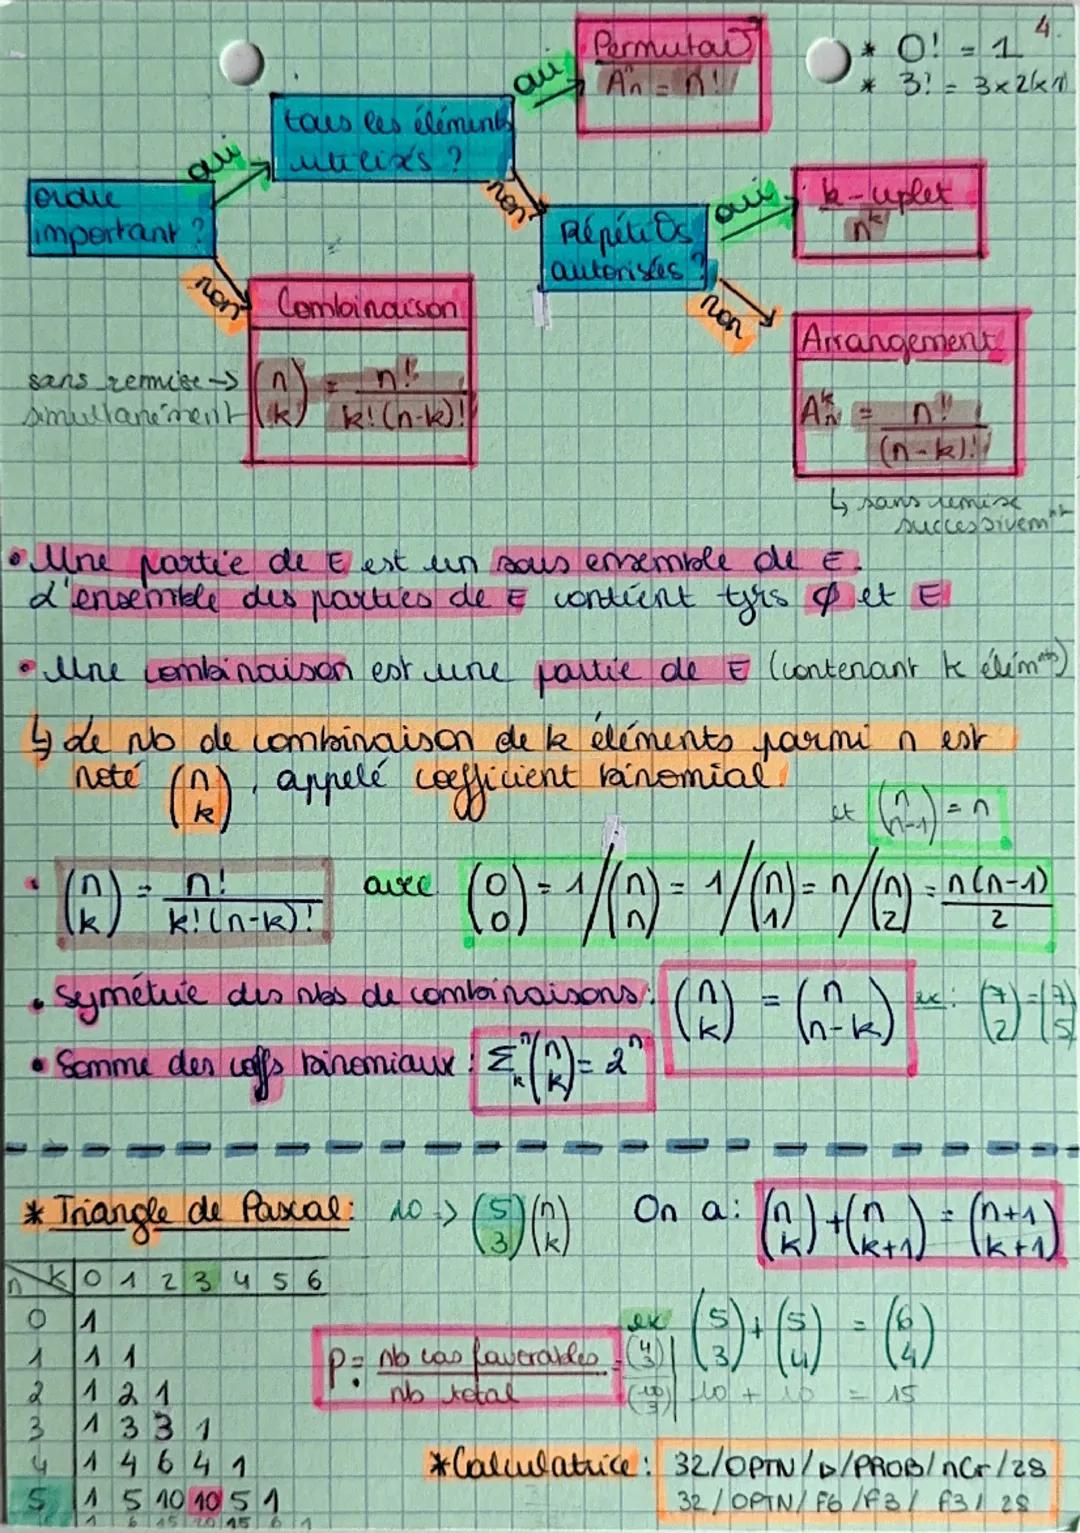 4.
* 0! = 1
* 3! = 3×2(×1)
Permutat°
Aⁿn = n!
oui
tous les éléments
utilisés ?
oui
non
ordre
important ?
non
Répétit°s
autorisées ?
oui
non
k-uplet
nᵏ
Combinaison
sans remise →
simultanément
(n k) = n! / k!(n-k)!
Arrangement
Aᵏn = n! / (n-k)!
↳ sans remise
successivemᵉⁿᵗ
• Une partie de E est un sous ensemble de E.
L'ensemble des parties de E contient tjrs ∅ et E
• Une combinaison est une partie de E (contenant k élémᵉⁿᵗˢ)
↳ Le nb de combinaison de k éléments parmi n est
noté (n k), appelé coefficient binomial.
et (n n-1) = n
• (n k) = n! / k!(n-k)! avec (0 0) = 1 / (n n) = 1 / (n 1) = n / (n 2) = n(n-1)/2
• Symétrie des nbs de combinaisons: (n k) = (n n-k) ex: (7 2) = (7 5)
• Somme des coeffs binomiaux : Σⁿk (n k) = 2ⁿ
* Triangle de Pascal: 10 → (5 3) (n k) On a: (n k) + (n k+1) = (n+1 k+1)
n k 0 1 2 3 4 5 6
0 1
1 1 1
2 1 2 1
3 1 3 3 1
4 1 4 6 4 1
5 1 5 10 10 5 1
1 6 15 20 15 6 1
P = nb cas favorables / nb total = (4 3) / (10 3)
ex (5 3) + (5 4) = (6 4)
10 + 10 = 15
*Calculatrice: 32/OPTN/▷/PROB/nCr/28
32/OPTN/F6/F3/F3/28